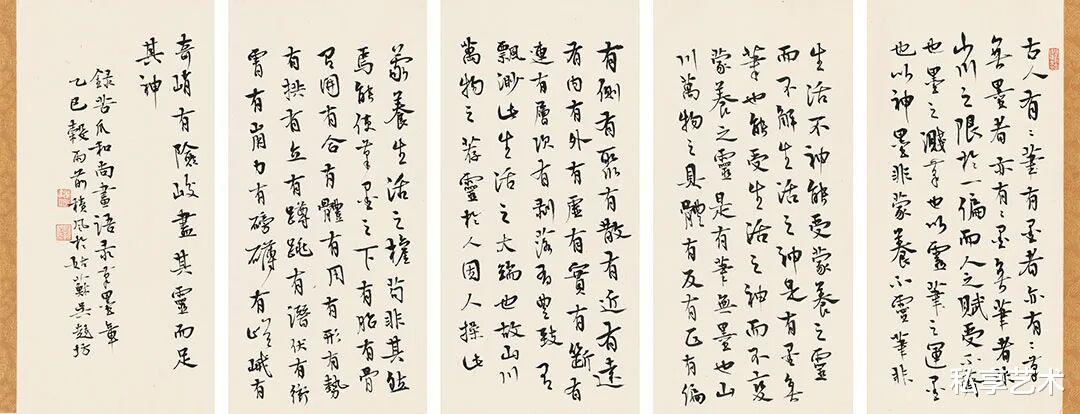 古人有〻筆有墨者亦有〻筆
無墨者亦有〻墨無筆者非
山川之限於一偏而人之賦受不齊
也墨之濺筆也以靈筆之運墨
也以神墨非蒙養不靈筆非
生活不神能受蒙養之靈
而不解生活之神是有墨無
筆也能受生活之神而不變
蒙養之靈是有筆無墨也山
川萬物之具體有反有正有偏
有側有聚有散有近有遠
有內有外有虛有實有斷有
連有層次有剥落有豐致有
飄渺此生活之大端也故山川
萬物之荐靈於人因人操此
蒙養生活之權苟非其然
焉能使筆墨之下有胎有骨
有開有合有體有用有形有勢
有拱有立有蹲跳有潛伏有衝
霄有崱屴有磅礴有嵯峨有
奇峭有險峻盡其靈而足
其神
錄苦瓜和尚畫語錄筆墨章
乙巳穀雨前積風於姑蘇吳趨坊
私享艺术